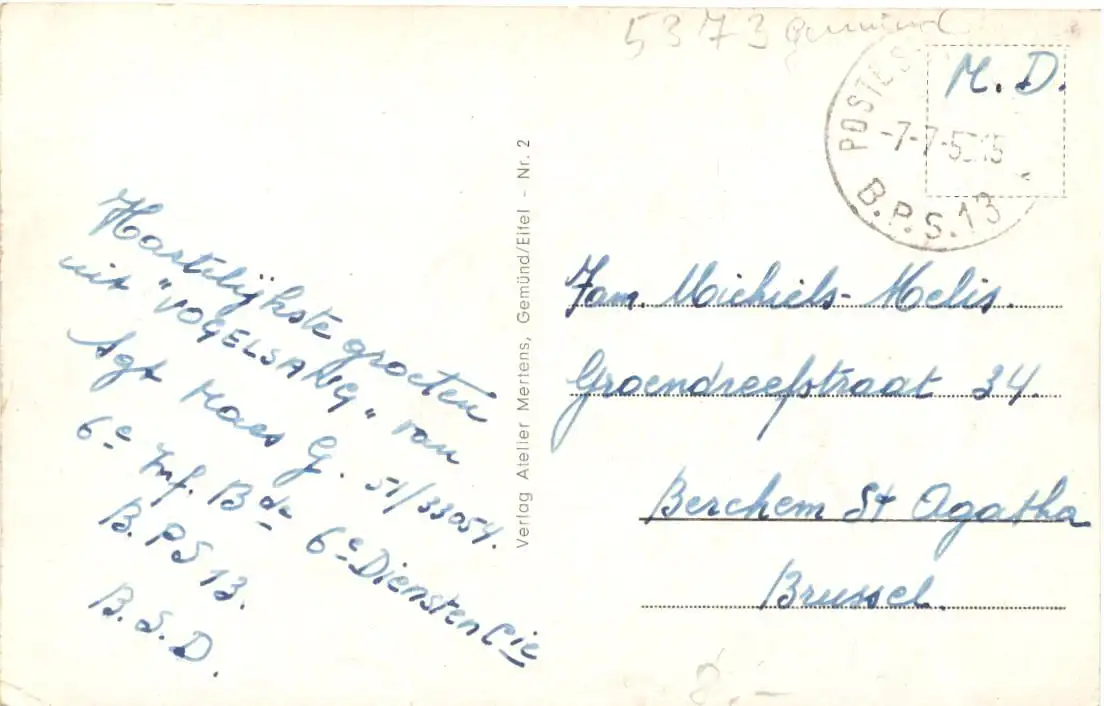 5373 Gemünd
M. D.
POSTES
-7-7-5 15
B.P.S.13
Hartelijkste groeten
uit "VOGELSANG" van
Sgt Maes G. 51/33054.
6e Inf. Bde 6e Diensten Cie
B.PS 13.
B.S.D.
Verlag Atelier Mertens, Gemünd/Eifel - Nr. 2
Fam. Michiels-Melis.
Groendreefstraat 34.
Berchem St Agatha
Brussel.
8.-